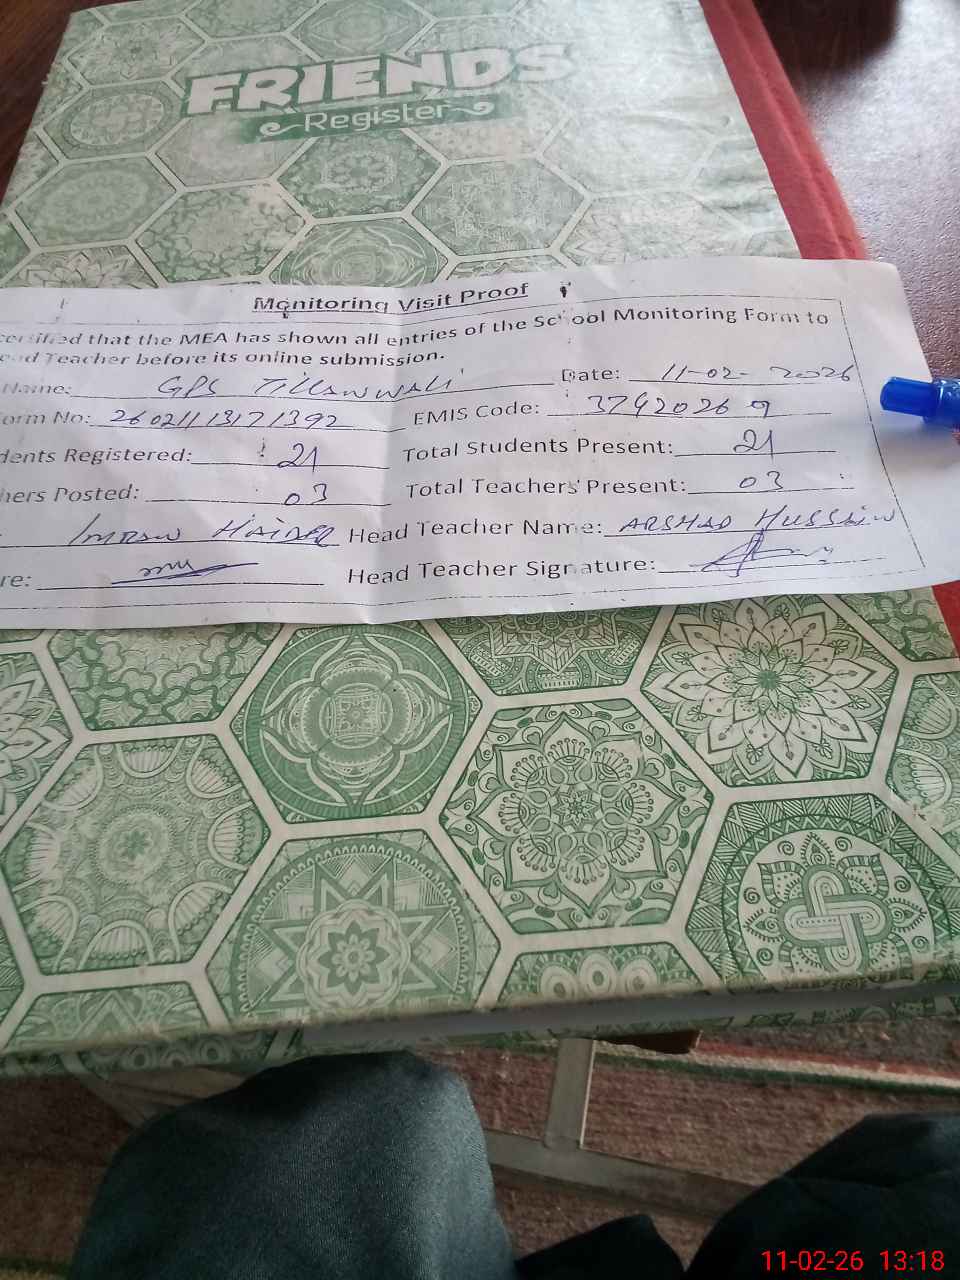 FRIENDS
Register
Monitoring Visit Proof
certified that the MEA has shown all entries of the School Monitoring Form to
ead Teacher before its online submission.
Name: GPS Date: 11-02-2026
orm No: 26021113171392 EMIS Code: 37420269
dents Registered: 21 Total Students Present: 21
hers Posted: 03 Total Teachers Present: 03
Imran Haider Head Teacher Name: ARSHAD HUSSAIN
re: Head Teacher Signature:
11-02-26 13:18